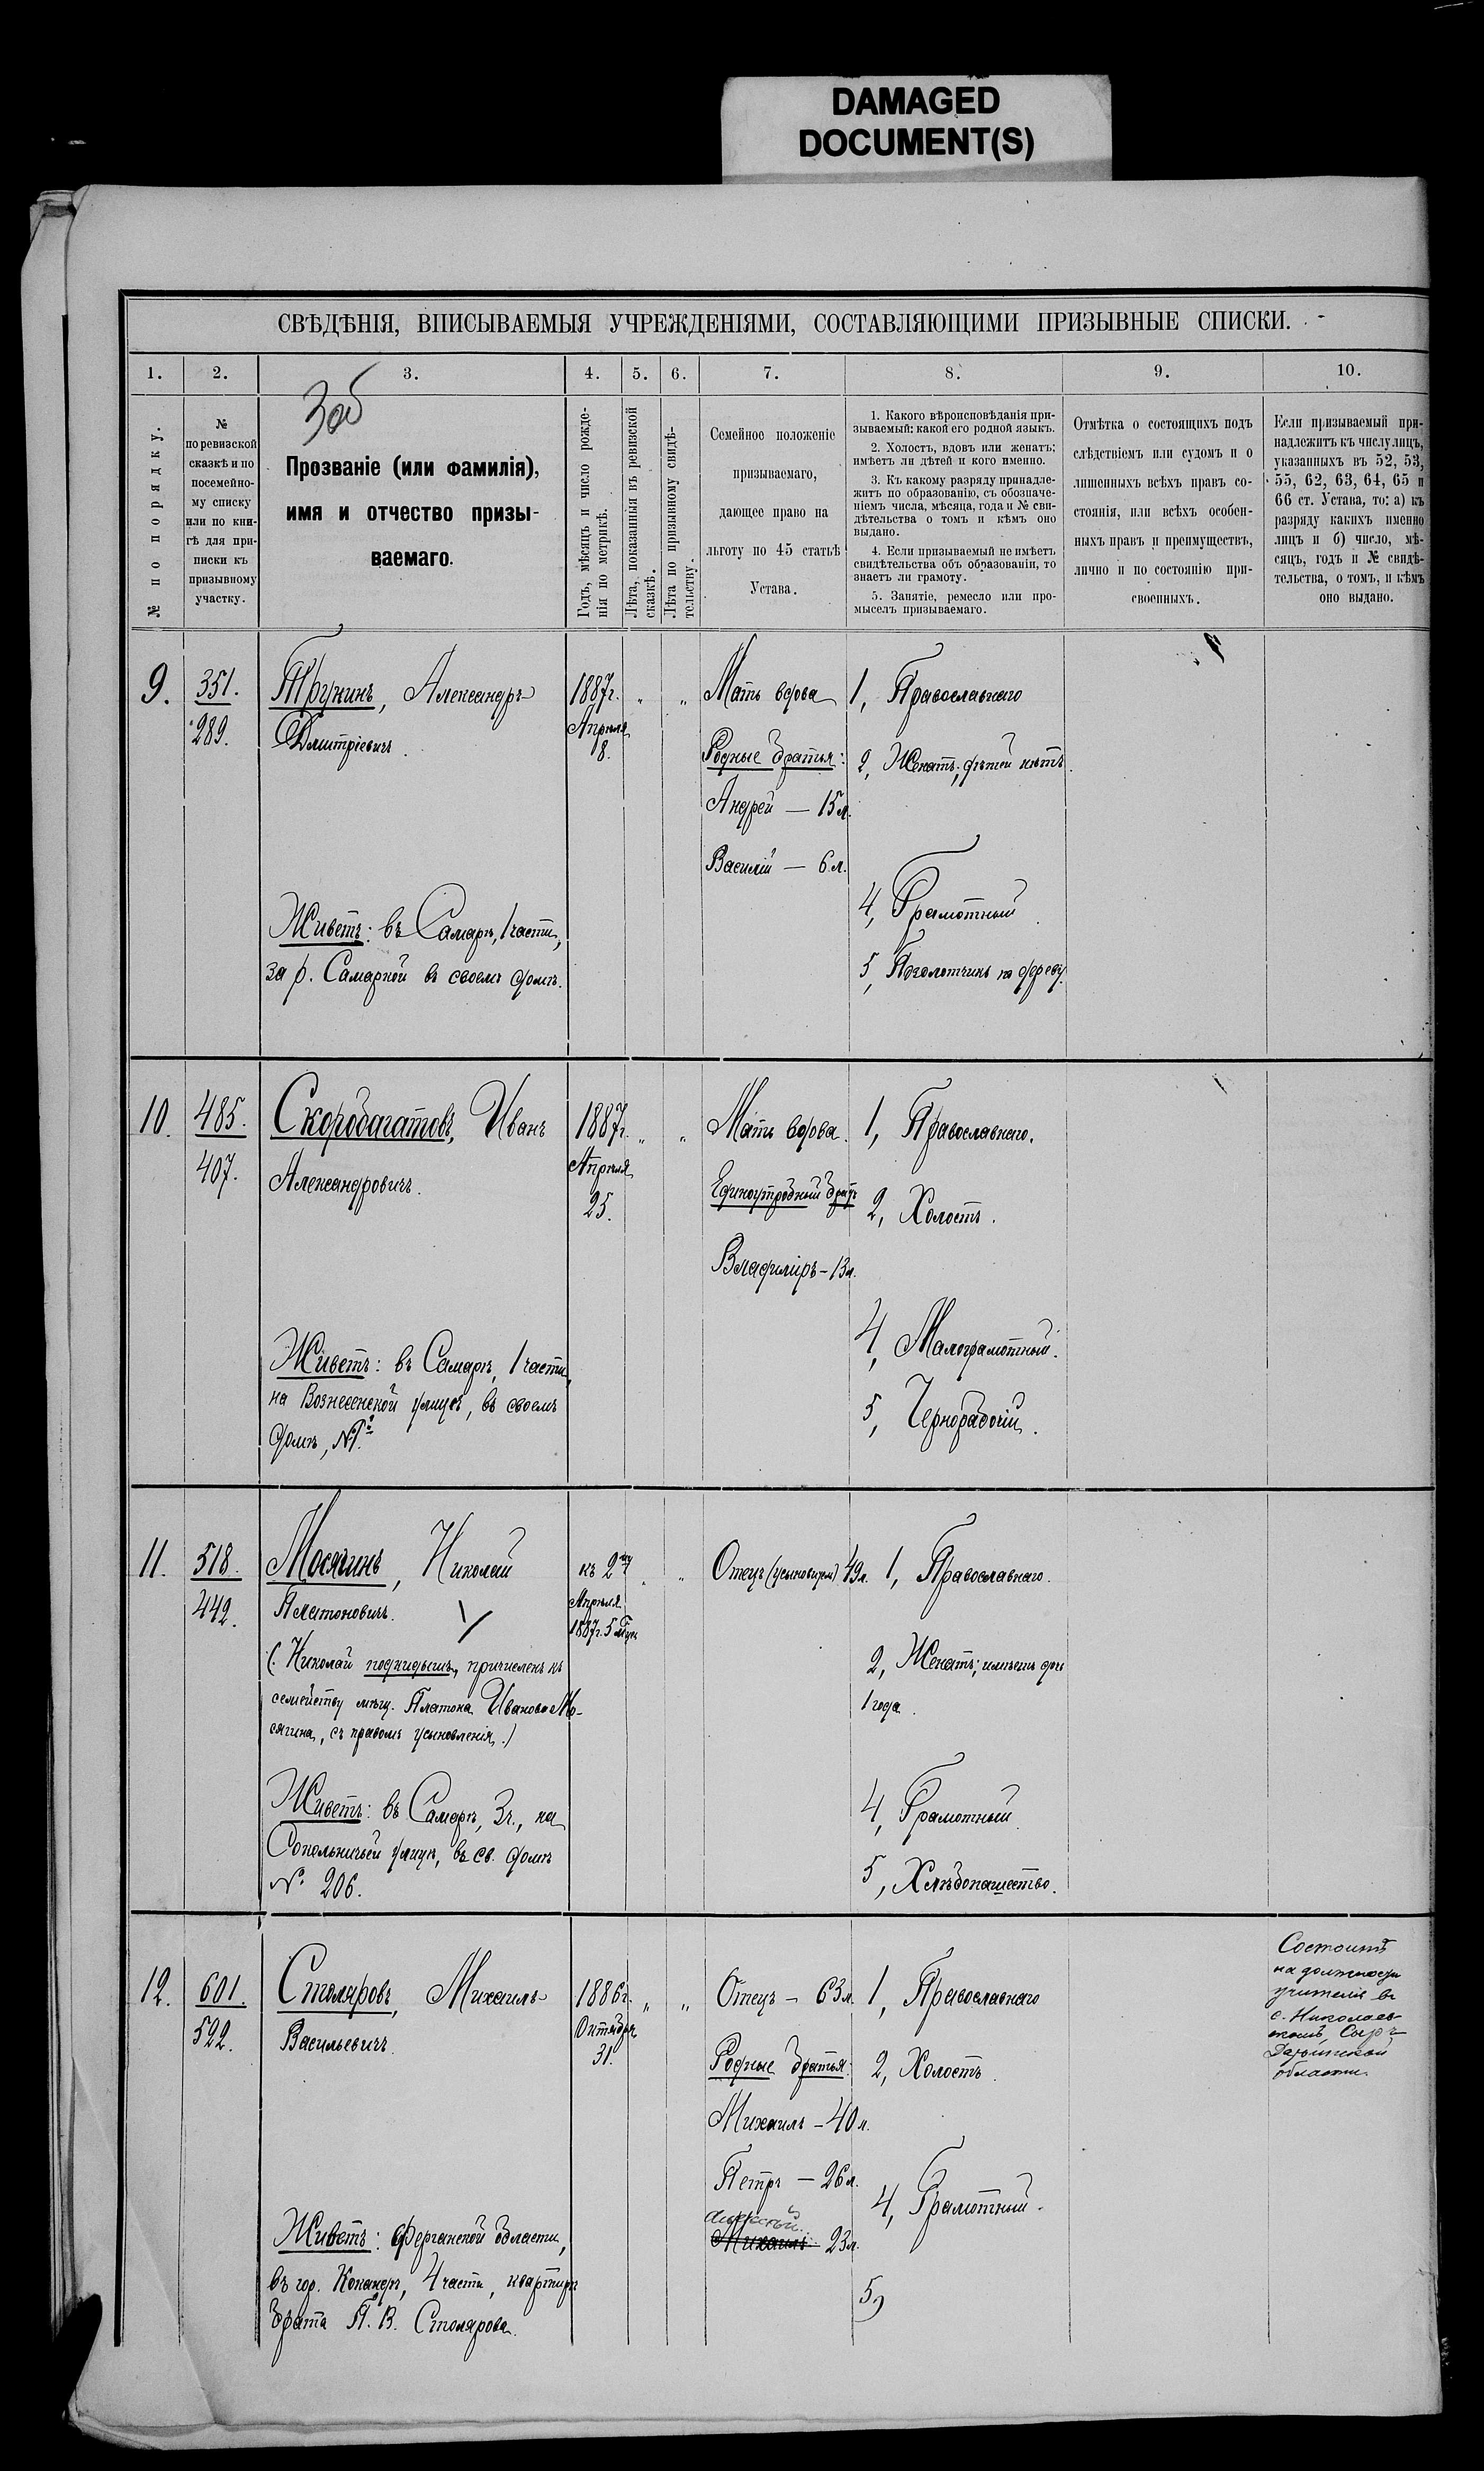 DAMAGED
DOCUMENT(S)
СВѢДѢНІЯ, ВПИСЫВАЕМЫЯ УЧРЕЖДЕНІЯМИ, СОСТАВЛЯЮЩИМИ ПРИЗЫВНЫЕ СПИСКИ.
1.
2.
3.
4.
5.
6.
7.
8.
9.
10.
№ по порядку.
№
по ревизской
сказкѣ и по
посемейно-
му списку
или по кни-
гѣ для при-
писки къ
призывному
участку.
Прозваніе (или фамилія),
имя и отчество призы-
ваемаго.
Годъ, мѣсяцъ и число рожде-
нія по метрикѣ.
Лѣта, показанныя въ ревизской
сказкѣ.
Лѣта по призывному свидѣ-
тельству.
Семейное положеніе
призываемаго,
дающее право на
льготу по 45 статьѣ
Устава.
1. Какого вѣроисповѣданія при-
зываемый; какой его родной языкъ.
2. Холостъ, вдовъ или женатъ;
имѣетъ ли дѣтей и кого именно.
3. Къ какому разряду принадле-
житъ по образованію, съ обозначе-
ніемъ числа, мѣсяца, года и № сви-
дѣтельства о томъ и кѣмъ оно
выдано.
4. Если призываемый не имѣетъ
свидѣтельства объ образованіи, то
знаетъ ли грамоту.
5. Занятіе, ремесло или про-
мыселъ призываемаго.
Отмѣтка о состоящихъ подъ
слѣдствіемъ или судомъ и о
лишенныхъ всѣхъ правъ со-
стоянія, или всѣхъ особен-
ныхъ правъ и преимуществъ,
лично и по состоянію при-
своенныхъ.
Если призываемый при-
надлежитъ къ числу лицъ,
указанныхъ въ 52, 53,
55, 62, 63, 64, 65 и
66 ст. Устава, то: а) къ
разряду какихъ именно
лицъ и б) число, мѣ-
сяцъ, годъ и № свидѣ-
тельства, о томъ, и кѣмъ
оно выдано.
9.
351.
289.
Трунинъ, Александръ
Дмитріевичъ.
Живетъ: въ Самарѣ, 1 части,
за р. Самаркой въ своемъ домѣ.
1887г.
Апрѣля
8.
" "
Мать вдова
Родные братья:
Андрей — 15л.
Василій — 6л.
1, Православнаго
2, Женатъ; дѣтей нѣтъ.
4, Грамотный
5, Позолотчикъ по дереву.
10.
485.
407.
Скоробагатовъ, Иванъ
Александровичъ.
Живетъ: въ Самарѣ, 1 части,
на Вознесенской улицѣ, въ своемъ
домѣ,
1887г.
Апрѣля
25.
" "
Мать вдова.
Единоутробный братъ
Владиміръ - 13л.
1, Православнаго.
2, Холостъ.
4, Малограмотный.
5, Чернорабочій.
11.
518.
442.
Мосягинъ, Николай
Платоновичъ.
(Николай подкидышъ, причисленъ къ
семейству мѣщ. Платона Иванова Мо-
сягина, съ правомъ усыновленія.)
Живетъ: въ Самарѣ, 3ч., на
Сокольничьей улицѣ, въ св. домѣ
№ 206.
къ 2му
Апрѣля
1887г. 5 мѣс.
" "
Отецъ (усыновител) 49л.
1, Православнаго.
2, Женатъ; имѣетъ дочь
1 года.
4, Грамотный
5, Хлѣбопашество.
12.
601.
522.
Столяровъ, Михаилъ
Васильевичъ.
Живетъ: Ферганской области,
въ гор. Кокандѣ, 4 части, квартира
брата П. В. Столярова.
1886г.
Октября
31.
" "
Отецъ - 63л.
Родные братья:
Михаилъ - 40л.
Петръ — 26л.
Алексѣй
Михаилъ 23л.
1, Православнаго
2, Холостъ.
4, Грамотный.
5,
Состоитъ
на должности
учителя въ
с. Николаев-
скомъ, Сыръ-
Дарьинской
области.